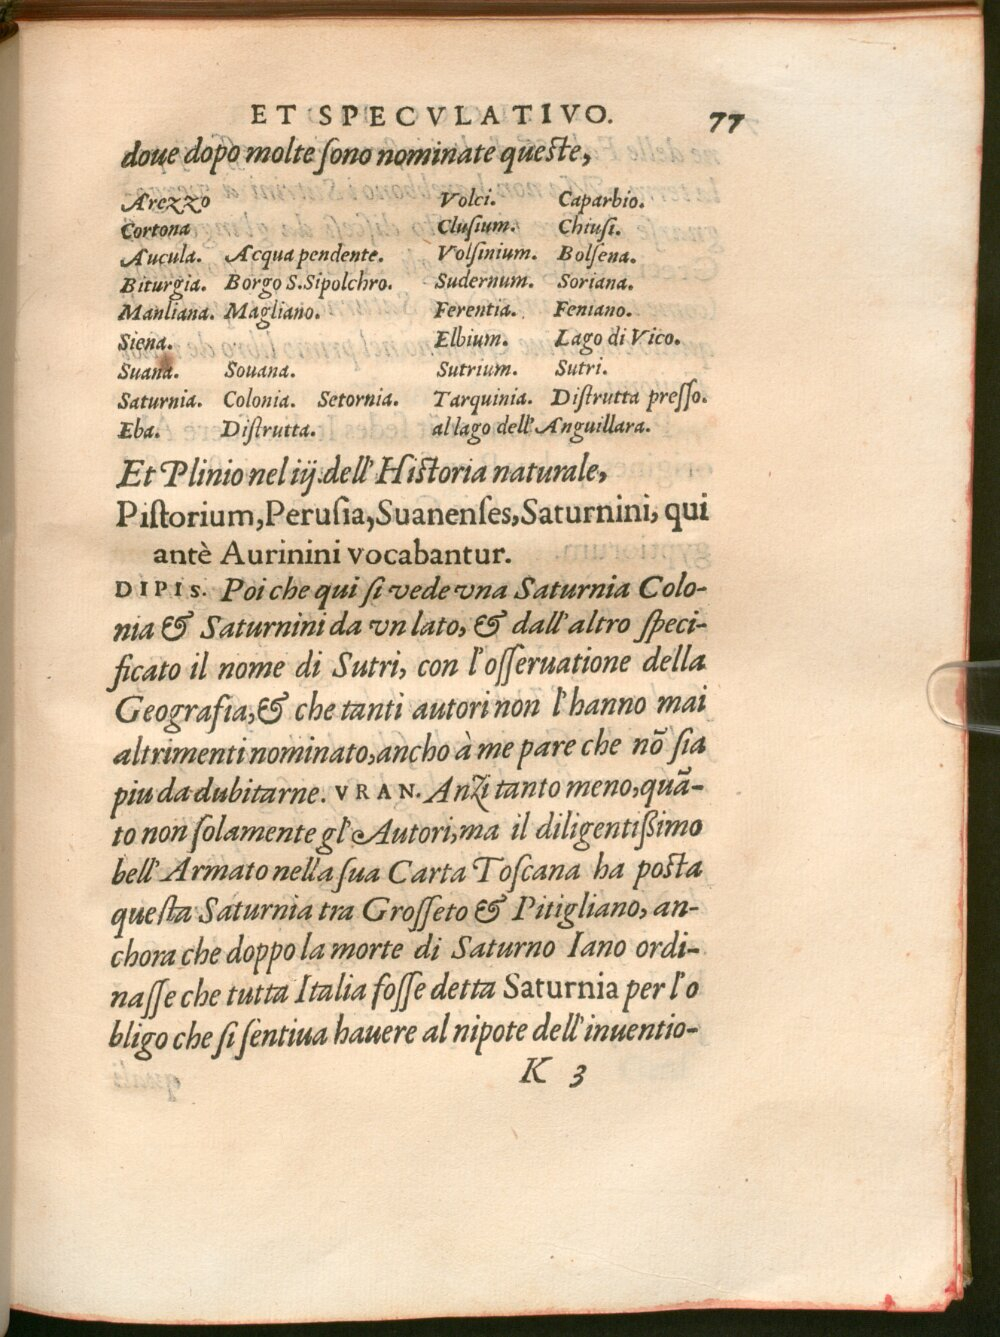 ET SPECVLATIVO. 77
doue dopo molte ſono nominate queſte,
Arezzo Volci. Caparbio.
Cortona Cluſium. Chiuſi.
Aucula. Acqua pendente. Volſinium. Bolſena.
Biturgia. Borgo S. Sipolchro. Sudernum. Soriana.
Manliana. Magliano. Ferentia. Feniano.
Siena. Elbium. Lago di Vico.
Suana. Souana. Sutrium. Sutri.
Saturnia. Colonia. Setornia. Tarquinia. Diſtrutta preſſo.
Eba. Diſtrutta. al lago dell'Anguillara.
Et Plinio nel iij. dell'Hiſtoria naturale,
Piſtorium, Peruſia, Suanenſes, Saturnini, qui
antè Aurinini vocabantur.
DIPIS. Poi che qui ſi vede vna Saturnia Colo-
nia & Saturnini da vn lato, & dall'altro ſpeci-
ficato il nome di Sutri, con l'oſſeruatione della
Geografia, & che tanti autori non l'hanno mai
altrimenti nominato, ancho à me pare che nō ſia
piu da dubitarne. VRAN. Anzi tanto meno, quā-
to non ſolamente gl'Autori, ma il diligentißimo
bell'Armato nella ſua Carta Toſcana ha poſta
queſta Saturnia tra Groſſeto & Pitigliano, an-
chora che doppo la morte di Saturno Iano ordi-
naſſe che tutta Italia foſſe detta Saturnia per l'o
bligo che ſi ſentiua hauere al nipote dell'inuentio-
K 3